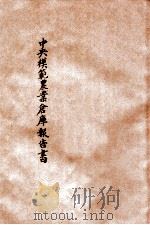 中央模範農業倉庫報告書